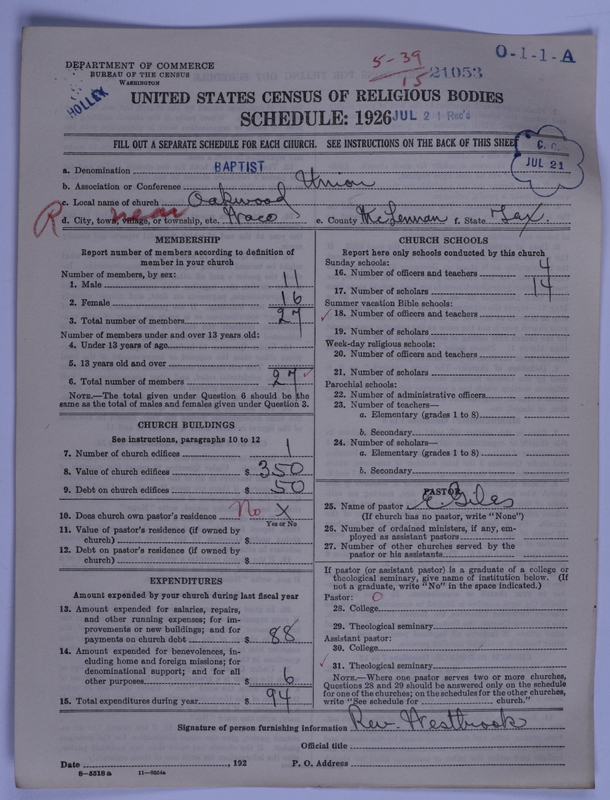 DEPARTMENT OF COMMERCE
BUREAU OF THE CENSUS
WASHINGTON
HOLLEX
5-39
15
21053
O-1-1-A
UNITED STATES CENSUS OF RELIGIOUS BODIES
SCHEDULE: 1926
JUL 21 Rec'd
FILL OUT A SEPARATE SCHEDULE FOR EACH CHURCH. SEE INSTRUCTIONS ON THE BACK OF THIS SHEET
C. C.
JUL 21
a. Denomination BAPTIST
b. Association or Conference Union
c. Local name of church Oakwood
R near
d. City, town, village, or township, etc. Waco e. County McLennan f. State Tex.
MEMBERSHIP
Report number of members according to definition of
member in your church
Number of members, by sex:
1. Male 11
2. Female 16
3. Total number of members 27
Number of members under and over 13 years old:
4. Under 13 years of age
5. 13 years old and over
6. Total number of members 27 ✓
NOTE.—The total given under Question 6 should be the
same as the total of males and females given under Question 3.
CHURCH BUILDINGS
See instructions, paragraphs 10 to 12
7. Number of church edifices 1
8. Value of church edifices $ 350
9. Debt on church edifices $ 50
10. Does church own pastor's residence No X
Yes or No
11. Value of pastor's residence (if owned by
church) $
12. Debt on pastor's residence (if owned by
church) $
EXPENDITURES
Amount expended by your church during last fiscal year
13. Amount expended for salaries, repairs,
and other running expenses; for im-
provements or new buildings; and for
payments on church debt $ 88
14. Amount expended for benevolences, in-
cluding home and foreign missions; for
denominational support; and for all
other purposes $ 6
15. Total expenditures during year $ 94
CHURCH SCHOOLS
Report here only schools conducted by this church
Sunday schools:
16. Number of officers and teachers 4
17. Number of scholars 14
Summer vacation Bible schools:
✓ 18. Number of officers and teachers
19. Number of scholars
Week-day religious schools:
20. Number of officers and teachers
21. Number of scholars
Parochial schools:
22. Number of administrative officers
23. Number of teachers—
a. Elementary (grades 1 to 8)
b. Secondary
24. Number of scholars—
a. Elementary (grades 1 to 8)
b. Secondary
PASTOR
25. Name of pastor E. Giles
(If church has no pastor, write "None")
26. Number of ordained ministers, if any, em-
ployed as assistant pastors
27. Number of other churches served by the
pastor or his assistants
If pastor (or assistant pastor) is a graduate of a college or
theological seminary, give name of institution below. (If
not a graduate, write "No" in the space indicated.)
Pastor: O
28. College
29. Theological seminary
Assistant pastor:
30. College
✓ 31. Theological seminary
NOTE.—Where one pastor serves two or more churches,
Questions 28 and 29 should be answered only on the schedule
for one of the churches; on the schedules for the other churches,
write "See schedule for church."
Signature of person furnishing information Rev. Westbrook
Official title
Date , 192 P. O. Address
8-5518a 11-9504a